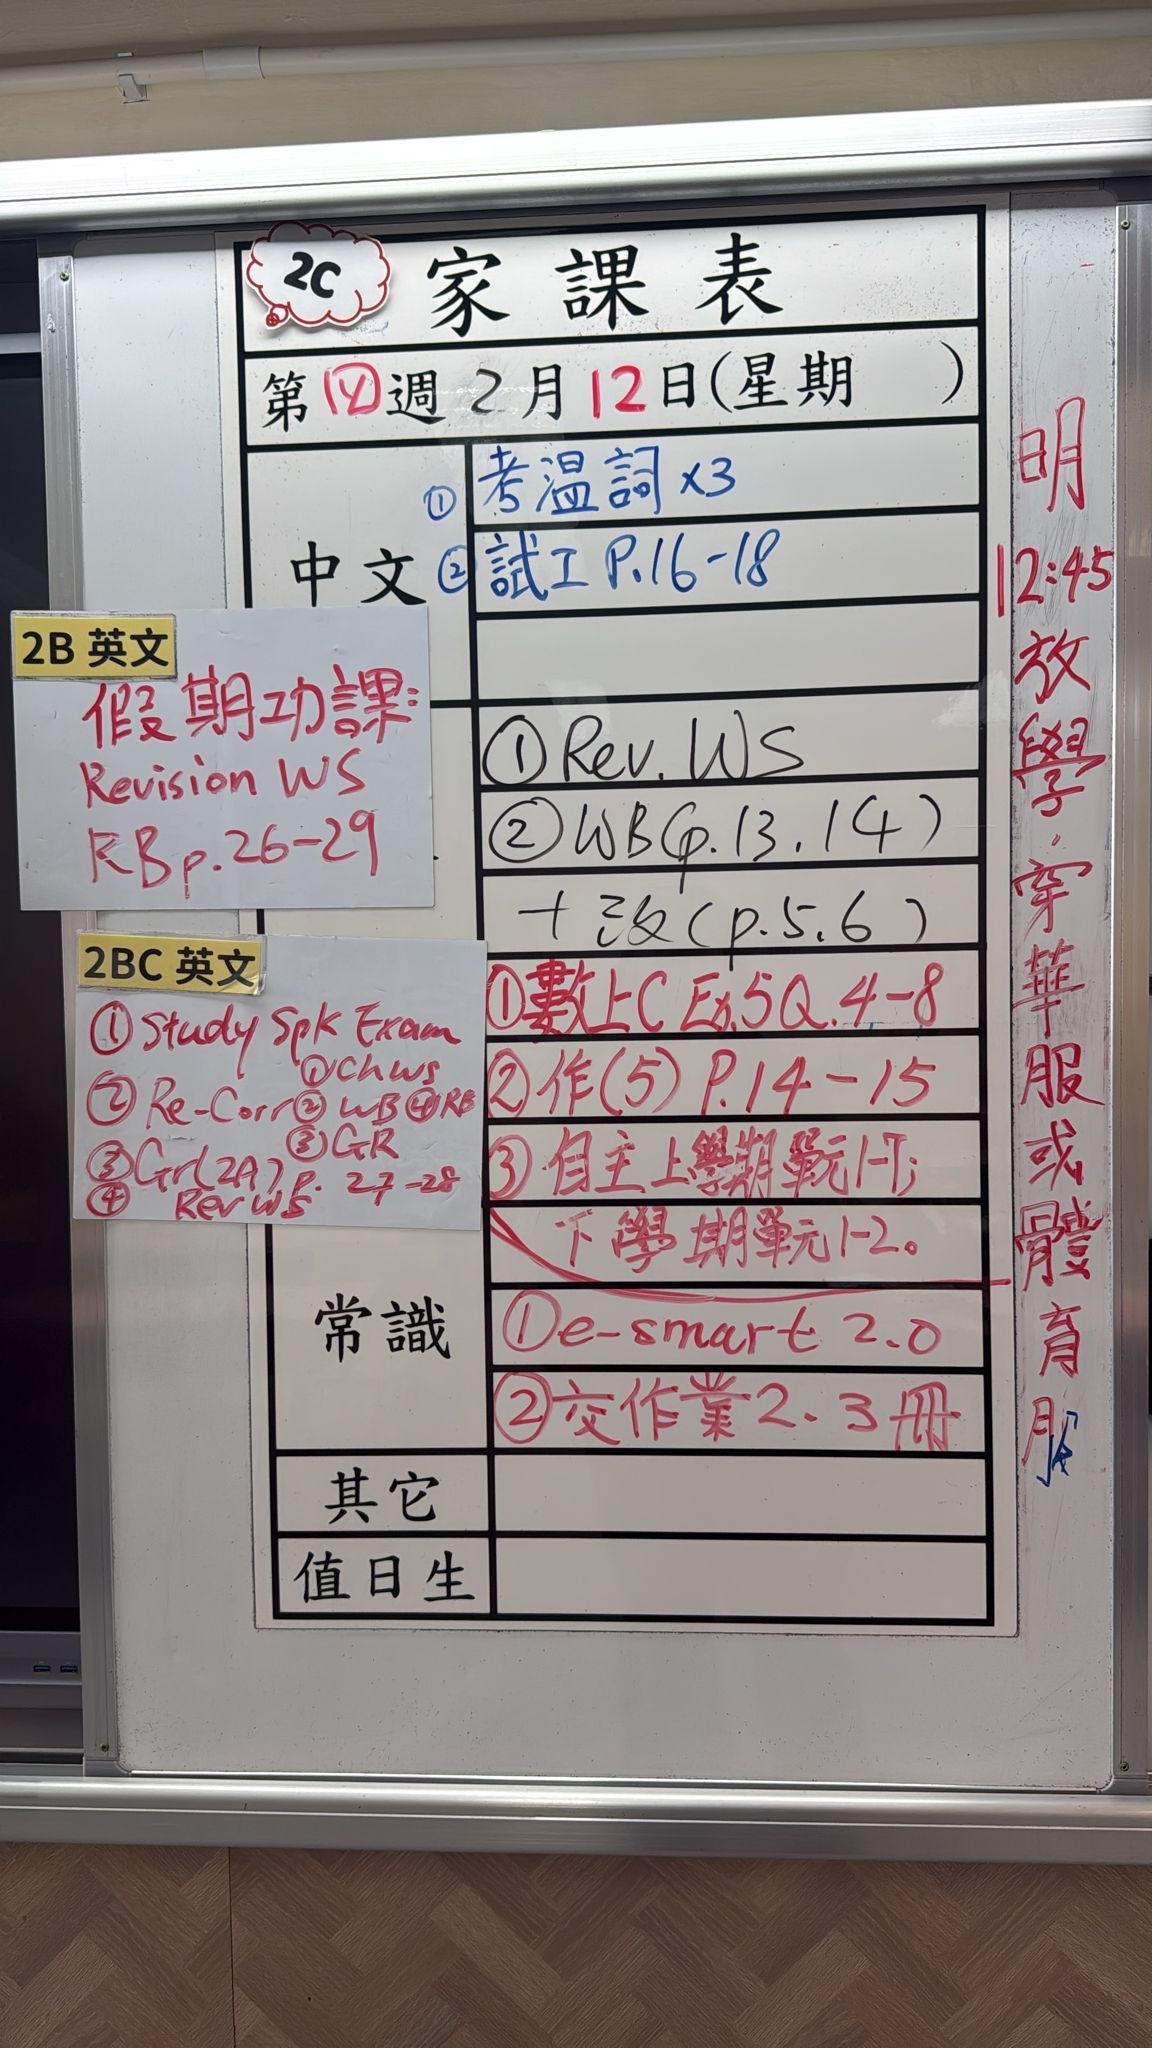 2C 家課表
第四週 2月12日(星期　)
中文
① 考溫詞 x3
② 試工 P.16-18
① Rev. WS
② WB(p.13.14)
+ 改(p.5.6)
① 數上C Ex.5 Q.4-8
② 作(5) P.14-15
③ 自主上學期單元1-7;
下學期單元1-2。
常識
① e-smart 2.0
② 交作業2.3冊
其它
值日生
2B 英文
假期功課:
Revision WS
RB p.26-29
2BC 英文
① Study Spk Exam
② Re-Corr ① Ch WS
② WB ④ RB
③ GR
③ Gr(2A) p. 27-28
④ Rev WS
明
12:45
放學,穿華服或體育服